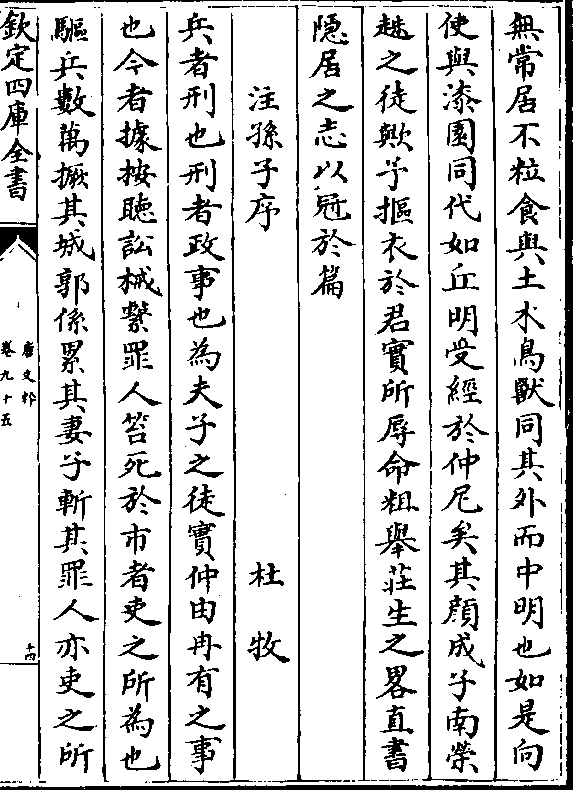 無常居不粒食與土木鳥獸同其外而中明也如是向
使與漆園同代如丘明受經於仲尼矣其顔成子南榮
趎之徒歟予摳衣於君實所辱命粗舉莊生之畧直書
隱居之志以冠於篇
注孫子序
杜牧
兵者刑也刑者政事也為夫子之徒實仲由冉有之事
也今者據按聽訟械繫罪人笞死於市者吏之所為也
驅兵數萬撅其城郭係累其妻子斬其罪人亦吏之所
欽定四庫全書
唐文粹
卷九十五
十四